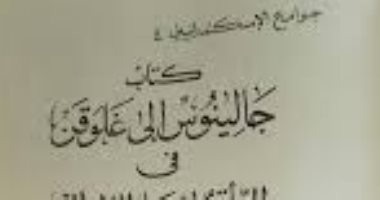 جوامع الإسكندرانيين ٤
كتاب
جالينوس إلى غلوقن
في